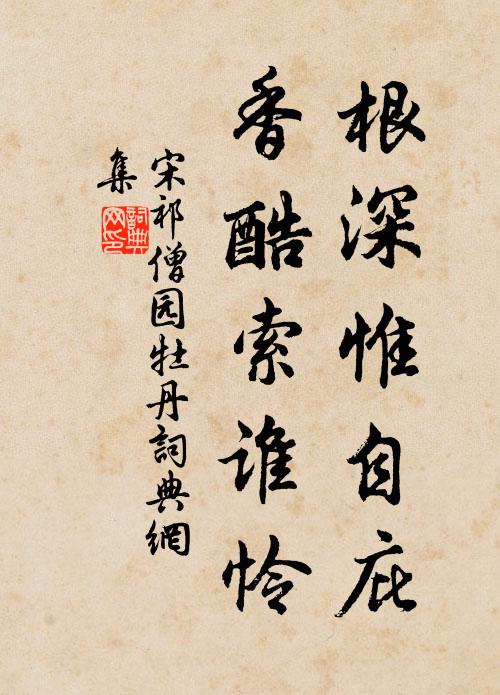 根深惟自庇
香酷索谁怜
宋祁僧园牡丹詞典網
集
詞典网印